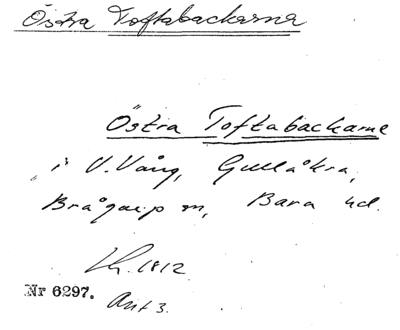 Östra Toftabackarna
Östra Toftabackarne
i V. Vång, Gullåkra,
Brågarp sn, Bara hd.
Lh. 1812
Nr 6297.
Ant 3.